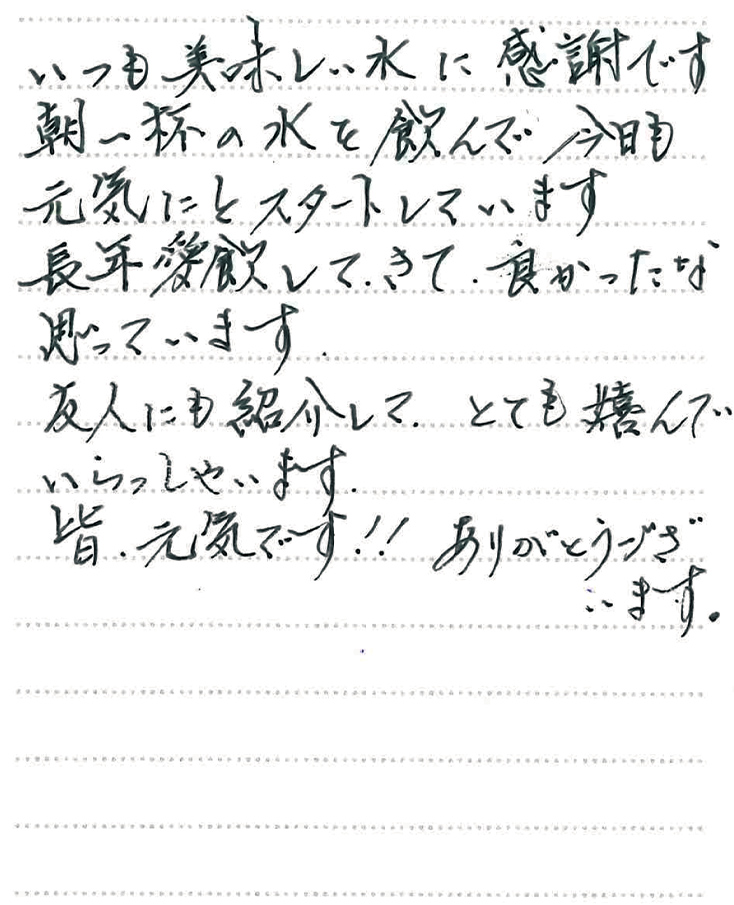 いつも美味しい水に感謝です
朝一杯の水を飲んで 今日も
元気にとスタートしています
長年愛飲して.きて.良かったな
思っています.
友人にも紹介して. とても嬉んで
いらっしゃいます.
皆.元気です!! ありがとうござ
います。